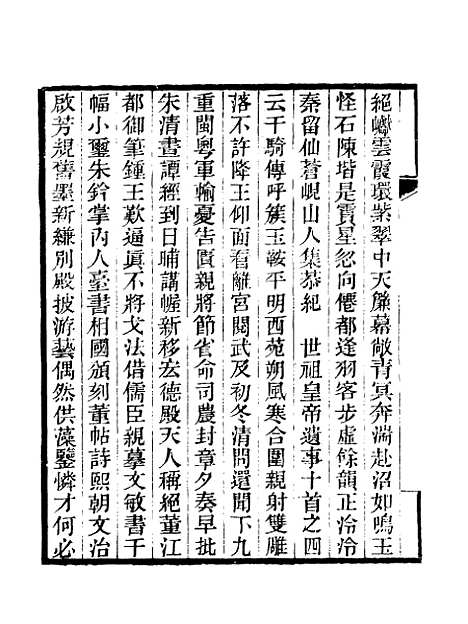 絕巘雲霞環紫翠中天簾幕敞青冥奔湍赴沼如鳴玉
怪石陳堦是霣星忽向僊都逢羽客步虛餘韻正泠泠
秦留仙蒼峴山人集恭紀　世祖皇帝遺事十首之四
云千騎傳呼簇玉鞍平明西苑朔風寒合圍親射雙雕
落不許降王仰面看離宮閱武及初冬清問還聞下九
重閩粵軍輸憂告匱親將節省命司農封章夕奏早批
朱清晝譚經到日晡講幄新移宏德殿天人稱絕董江
都御筆鍾王歎逼眞不將戈法借儒臣親摹文敏書千
幅小璽朱鈐掌內人臺書相國頒刻董帖詩熙朝文治
啟芳規舊墨新縑別殿披游藝偶然供藻鑒憐才何必